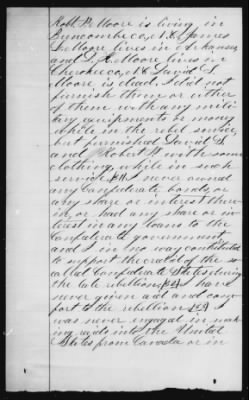 Robt P. Moore is living in
Buncombe Co, N.C. James
L. Moore lives in Arkansas,
and J. A. Moore lives in
Cherokee Co, N.C. David S.
Moore is dead. I did not
furnish them or either
of them with any mili
tary equipments or money
while in the rebel service,
but furnished David S.
and Robert P. with some
clothing, while in such
service. I never owned
any Confederate bonds, or
any share or interest there-
in, or had any share or in-
terest in any loan to the
Confederate government
and I in no way contributed
to support the credit of the so-
called Confederate States during
the late rebellion. I have
never given aid and com-
fort to the rebellion. I
was never engaged in mak
ing raids into the United
States from Canada or in